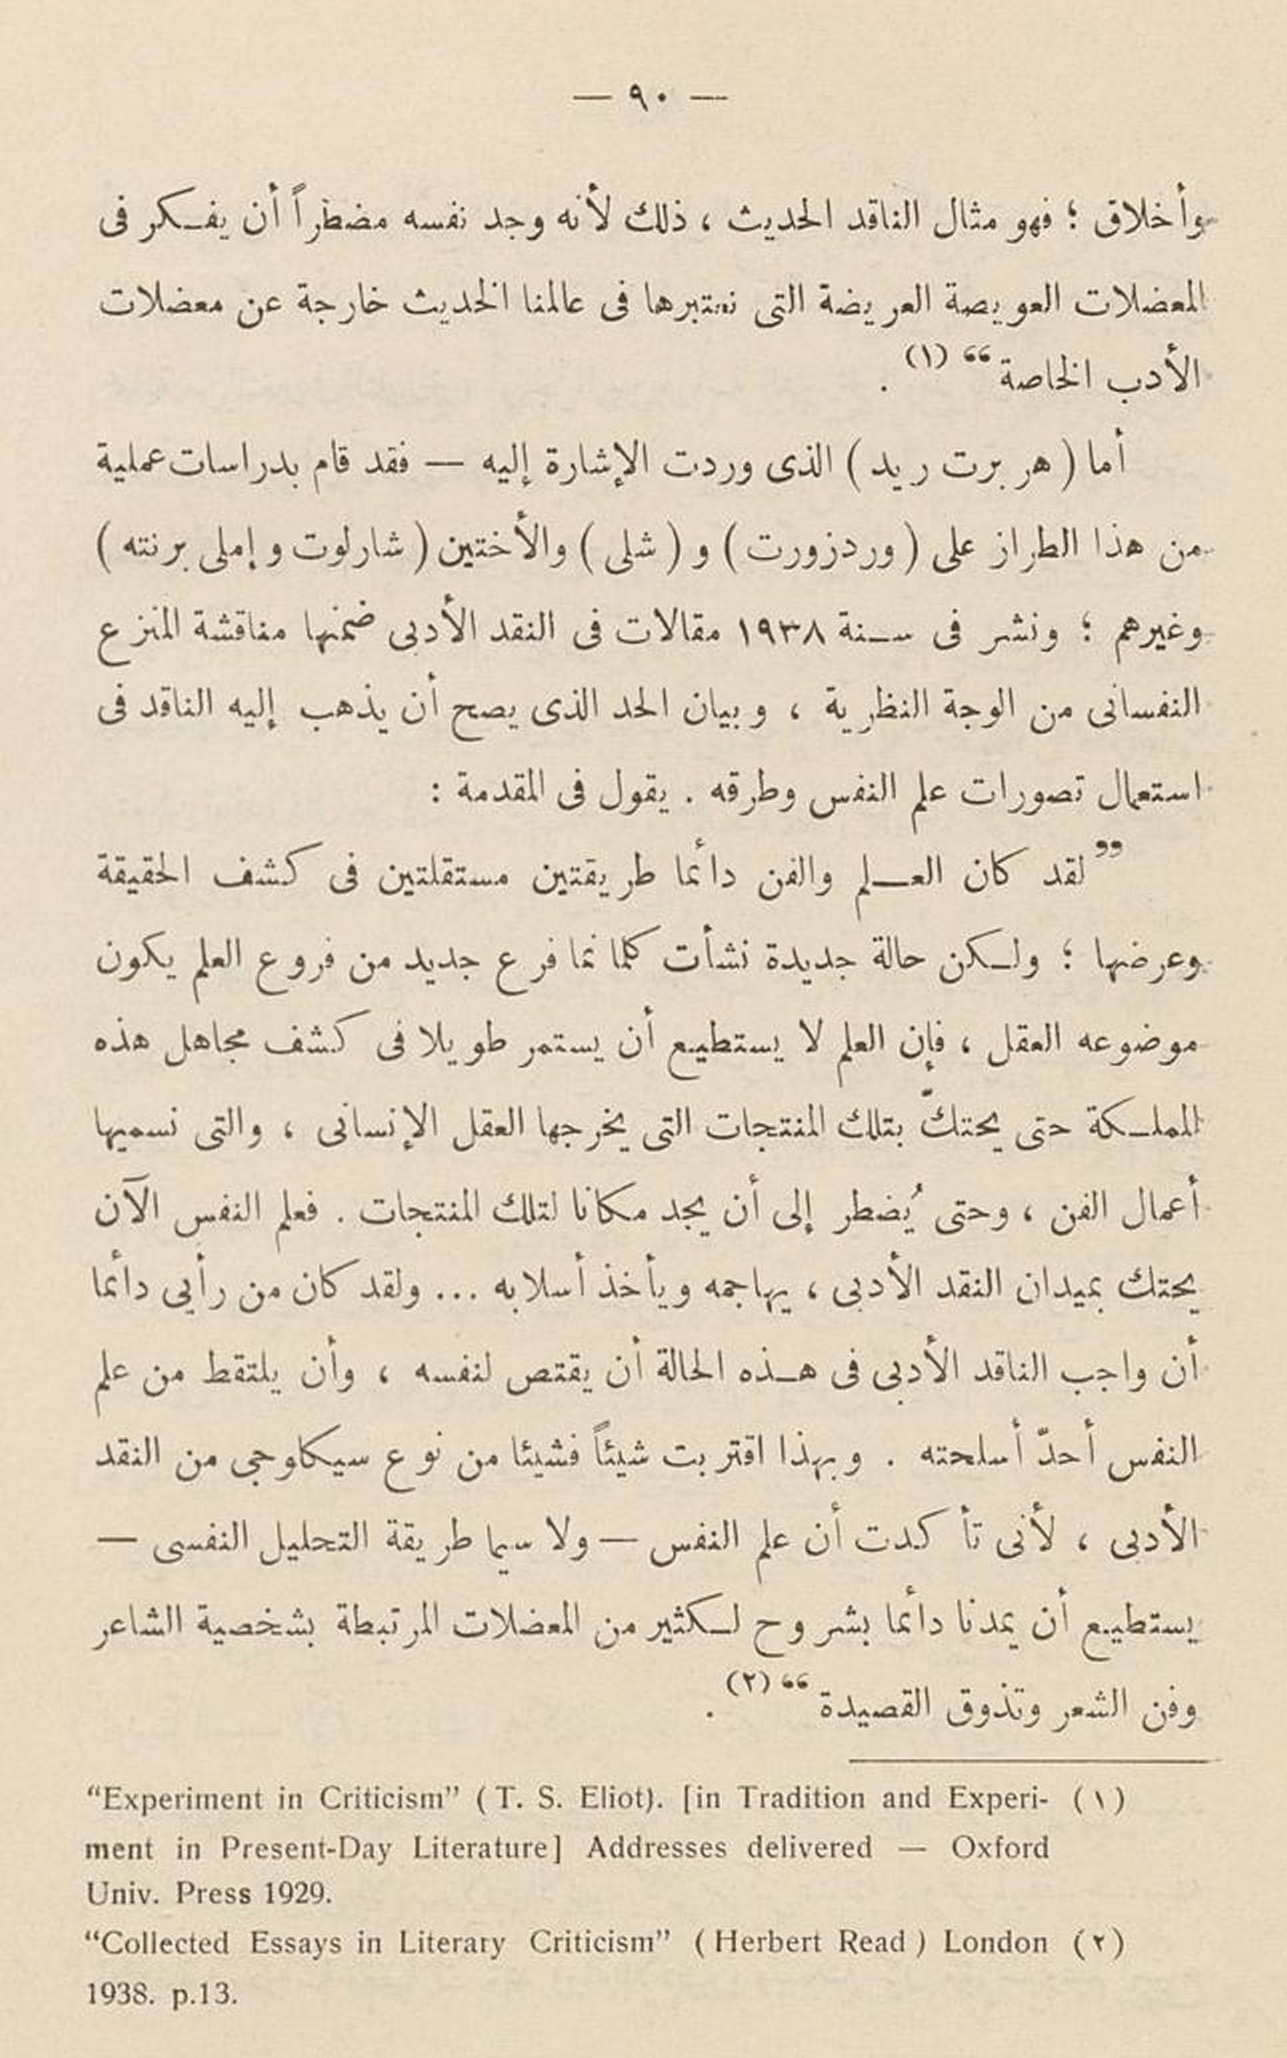 — ٩٠ —
وأخلاق ؛ فهو مثال الناقد الحديث ، ذلك لأنه وجد نفسه مضطراً أن يفكر فى
المعضلات العويصة العريضة التى نعتبرها فى عالمنا الحديث خارجة عن معضلات
الأدب الخاصة “ (١) .
أما ( هربرت ريد ) الذى وردت الإشارة إليه — فقد قام بدراسات عملية
من هذا الطراز على ( وردزورت ) و ( شلى ) والأختين ( شارلوت وإملى برنته )
وغيرهم ؛ ونشر فى سنة ١٩٣٨ مقالات فى النقد الأدبى ضمنها مناقشة المنزع
النفسانى من الوجة النظرية ، وبيان الحد الذى يصح أن يذهب إليه الناقد فى
استعمال تصورات علم النفس وطرقه . يقول فى المقدمة :
” لقد كان العلم والفن دائما طريقتين مستقلتين فى كشف الحقيقة
وعرضها ؛ ولكن حالة جديدة نشأت كلما نما فرع جديد من فروع العلم يكون
موضوعه العقل ، فإن العلم لا يستطيع أن يستمر طويلا فى كشف مجاهل هذه
المملكة حتى يحتكّ بتلك المنتجات التى يخرجها العقل الإنسانى ، والتى نسميها
أعمال الفن ، وحتى يُضطر إلى أن يجد مكانا لتلك المنتجات . فعلم النفس الآن
يحتك بميدان النقد الأدبى ، يهاجمه ويأخذ أسلابه ... ولقد كان من رأيى دائما
أن واجب الناقد الأدبى فى هذه الحالة أن يقتص لنفسه ، وأن يلتقط من علم
النفس أحدّ أسلحته . وبهذا اقتربت شيئاً فشيئا من نوع سيكاوجى من النقد
الأدبى ، لأنى تأكدت أن علم النفس — ولا سيما طريقة التحليل النفسى —
يستطيع أن يمدنا دائما بشروح لكثير من المعضلات المرتبطة بشخصية الشاعر
وفن الشعر وتذوق القصيدة “ (٢) .
“Experiment in Criticism” ( T. S. Eliot). [in Tradition and Experi- (١)
ment in Present-Day Literature] Addresses delivered — Oxford
Univ. Press 1929.
“Collected Essays in Literary Criticism” ( Herbert Read ) London (٢)
1938. p.13.